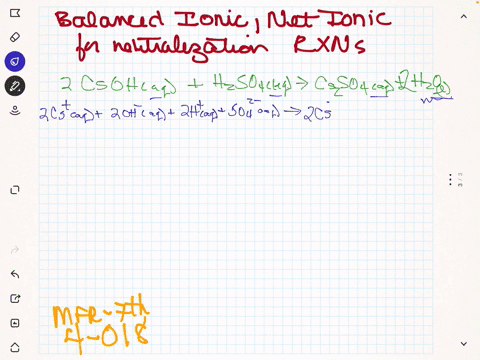 Balanced Ionic, Net Ionic
for neutralization RXNs
2 CsOH(aq) + H₂SO₄(aq) → Cs₂SO₄(aq) + 2H₂O(l)
2Cs⁺(aq) + 2OH⁻(aq) + 2H⁺(aq) + SO₄²⁻(aq) → 2Cs
MFR-7th
4-018